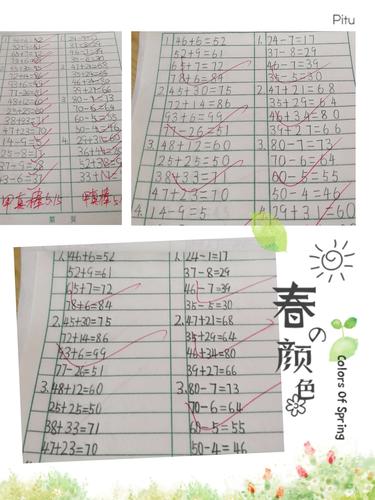 Pitu
47+23=70 50-4=46
14-9=5
甲真棒 5.15 甲真棒
1.46+6=52 1.24-7=17
52+9=61 37-8=29
65+7=72 46-7=39
78+6=84 35-5=30
2.45+30=75 2.47+21=68
72+14=86 35+29=64
93+6=99 46+34=80
77-26=51 39+27=66
3.48+12=60 3.80-7=73
25+25=50 70-6=64
38+33=71 60-5=55
47+23=70 50-4=46
4.14-9=5 4.29+31=60
1.46+6=52 1.24-7=17
52+9=61 37-8=29
65+7=72 46-7=39
78+6=84 35-5=30
2.45+30=75 2.47+21=68
72+14=86 35+29=64
93+6=99 46+34=80
77-26=51 39+27=66
3.48+12=60 3.80-7=73
25+25=50 70-6=64
38+33=71 60-5=55
47+23=70 50-4=46
春の颜色
Colors Of Spring